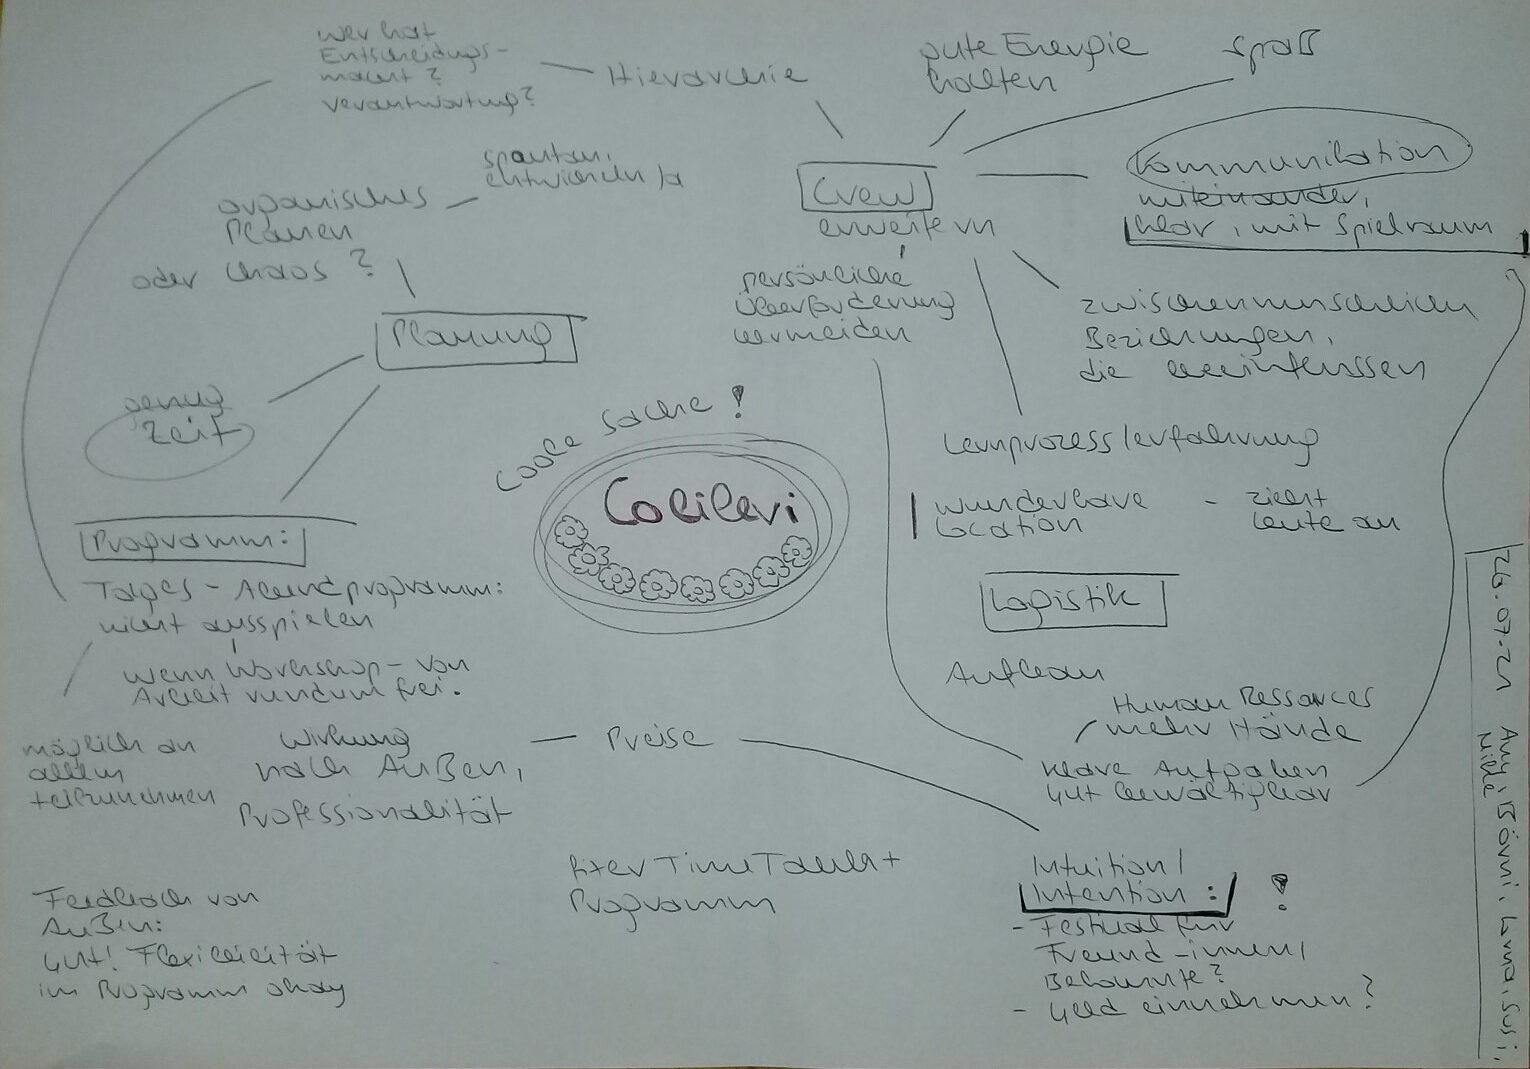 wer hat
Entscheidungs-
macht?
Verantwortung?
Hierarchie
gute Energie
halten
Spaß
spontan,
entwickeln
organisches
Planen
oder Chaos?
Crew
erweitern
Kommunikation
miteinander,
klar, mit Spielraum
persönliche
Überforderung
vermeiden
zwischenmenschlichen
Beziehungen,
die beeinflussen
Planung
genug
Zeit
Coole Sache!
Colilevi
Lernprozess/erfahrung
wunderbare
Location
- zieht
Leute an
Programm:
Tages - Abendprogramm:
nicht ausspielen
wenn Workshop - von
Arbeit rundum frei.
Logistik
Aufbau
Human Ressources
mehr Hände
klare Aufgaben
gut bewältigbar
möglich an
allem
teilzunehmen
Wirkung
nach Außen,
Professionalität
Preise
fixer TimeTable +
Programm
Intuition/
Intention: !
- Festival für
Freund-innen/
Bekannte?
- Geld einnehmen?
Feedback von
Außen:
Gut! Flexibilität
im Programm okay
26.07.21 Amy, Bärni, Luna, Susi,